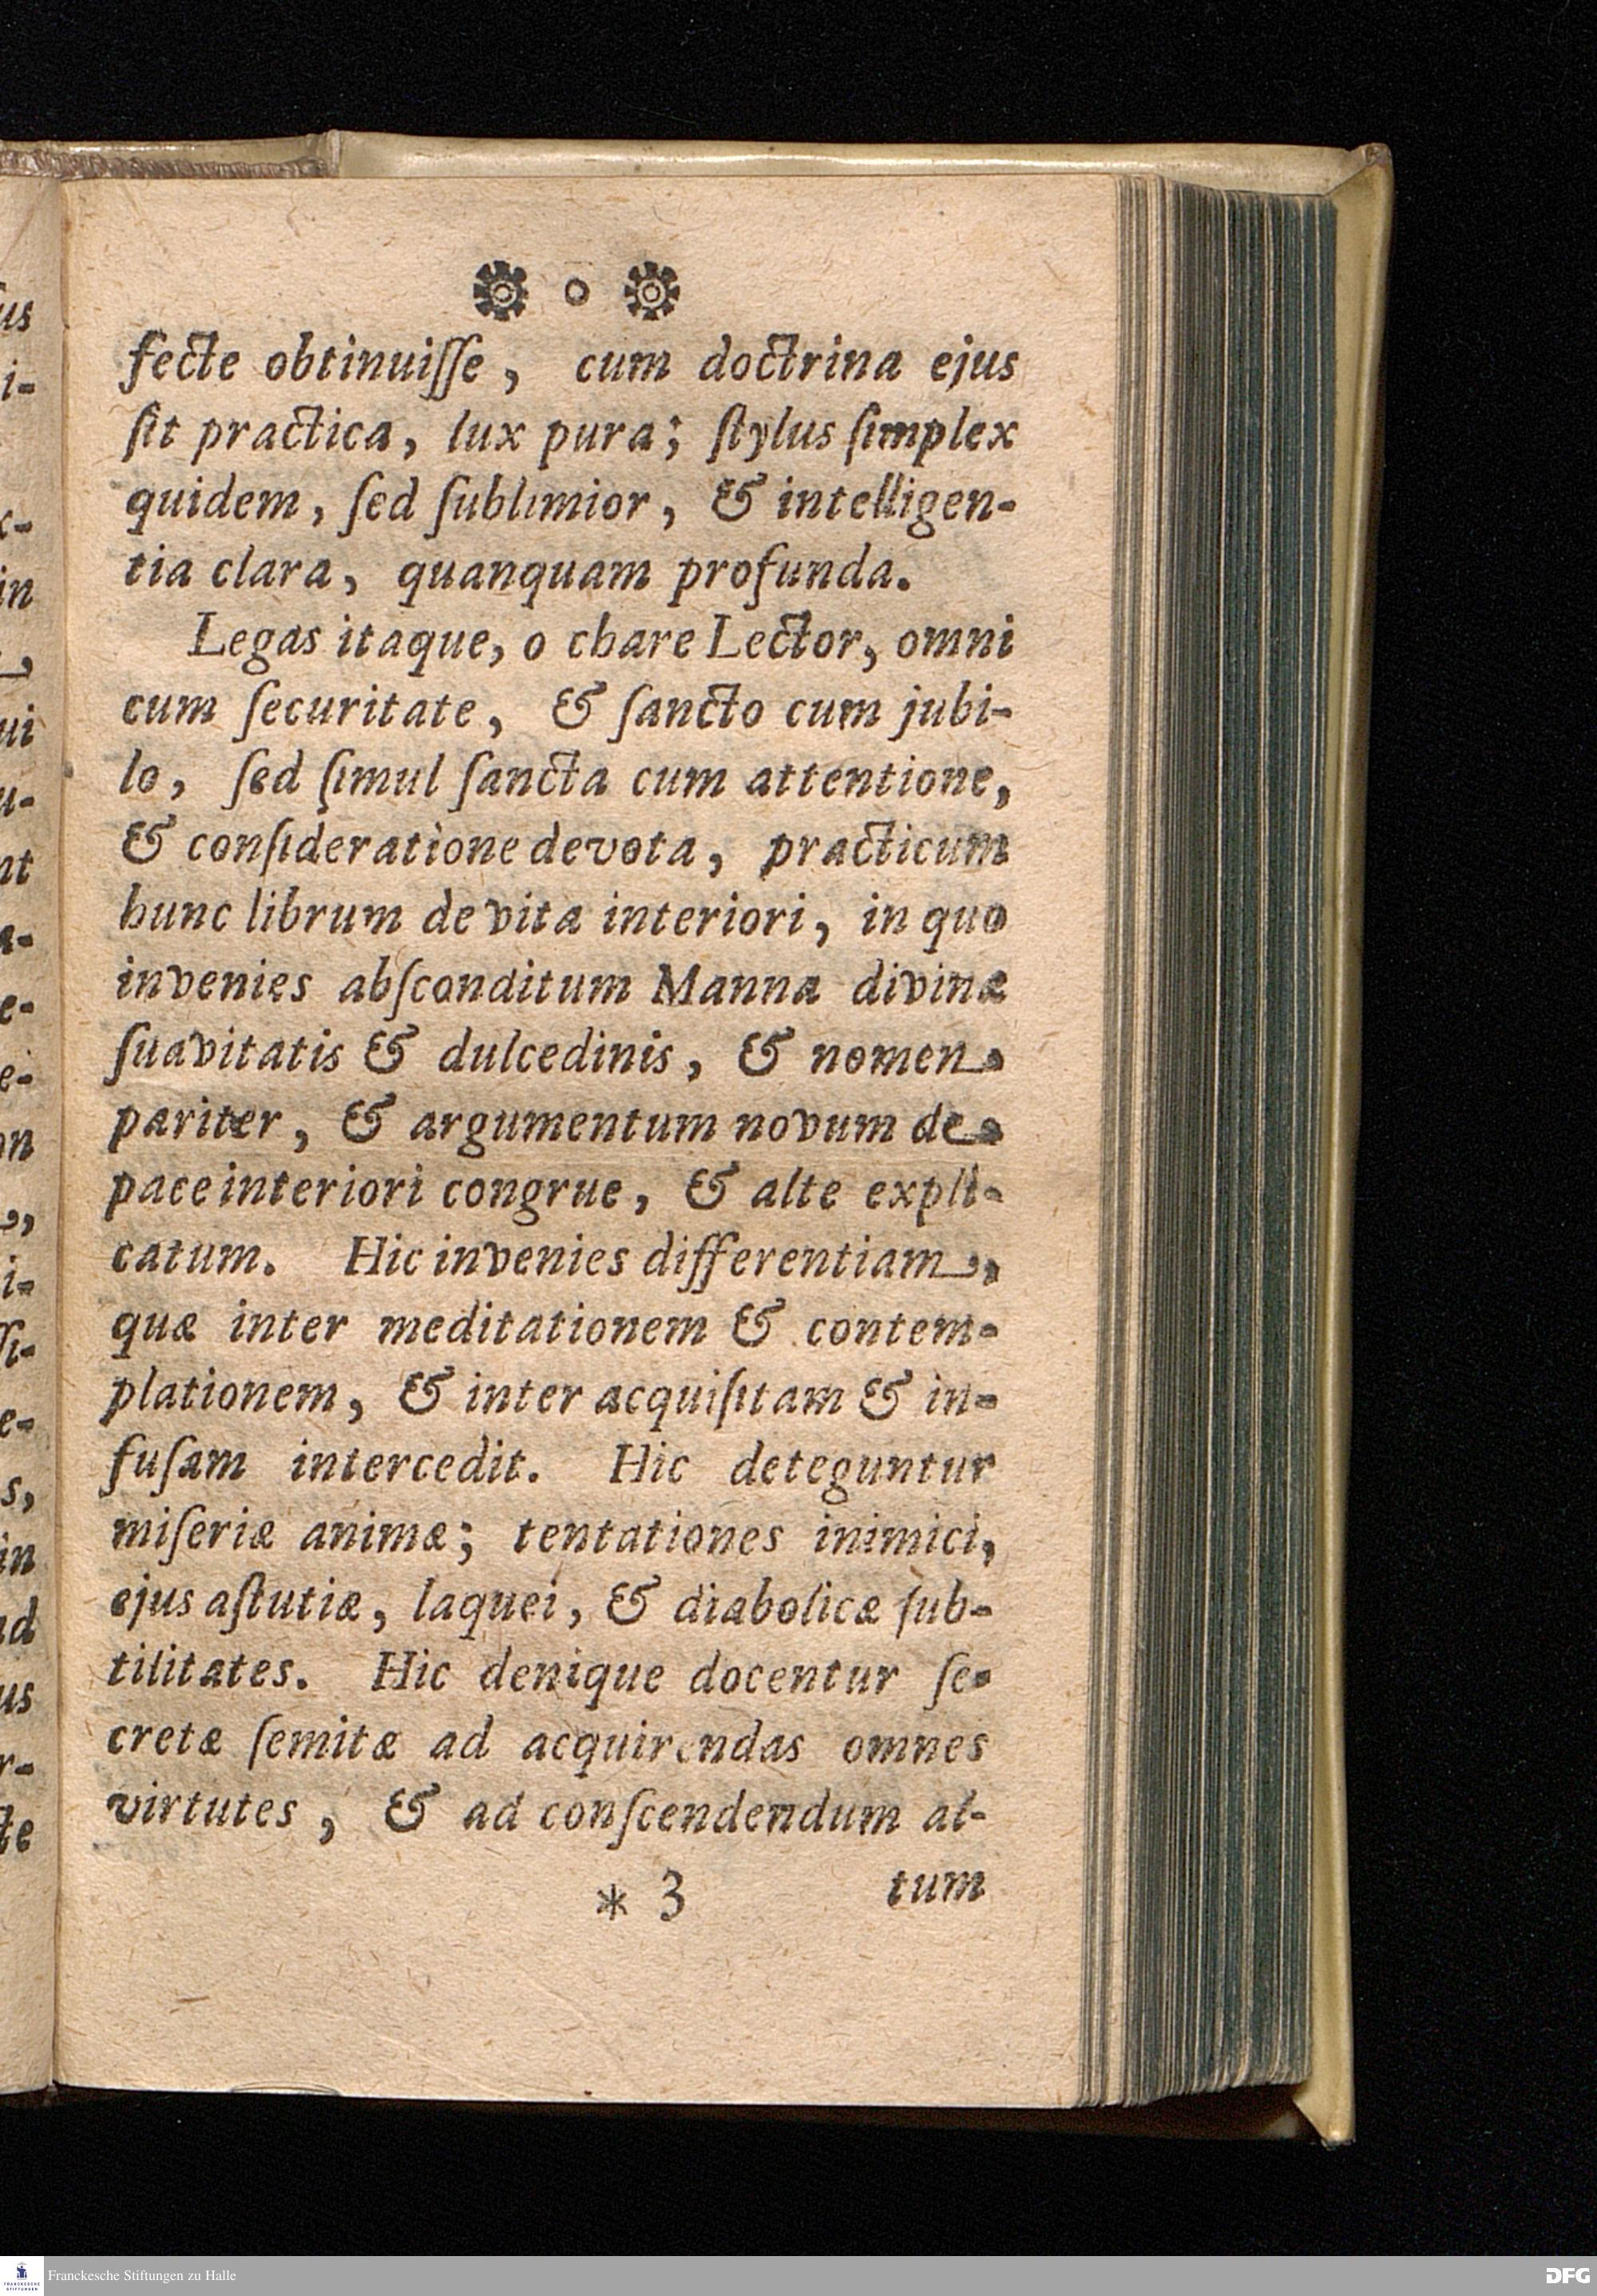 o
fecte obtinuiſſe, cum doctrina ejus
ſit practica, lux pura; ſtylus ſimplex
quidem, ſed ſublimior, & intelligen-
tia clara, quanquam profunda.
Legas itaque, o chare Lector, omni
cum ſecuritate, & ſancto cum jubi-
lo, ſed ſimul ſancta cum attentione,
& conſideratione devota, practicum
hunc librum de vita interiori, in quo
invenies abſconditum Manna divinæ
ſuavitatis & dulcedinis, & nomen
pariter, & argumentum novum de
pace interiori congrue, & alte expli-
catum. Hic invenies differentiam,
quæ inter meditationem & contem-
plationem, & inter acquiſitam & in-
fuſam intercedit. Hic deteguntur
miſeriæ animæ; tentationes inimici,
ejus aſtutiæ, laquei, & diabolicæ ſub-
tilitates. Hic denique docentur ſe-
cretæ ſemitæ ad acquirendas omnes
virtutes, & ad conſcendendum al-
* 3 tum
Franckesche Stiftungen zu Halle
DFG